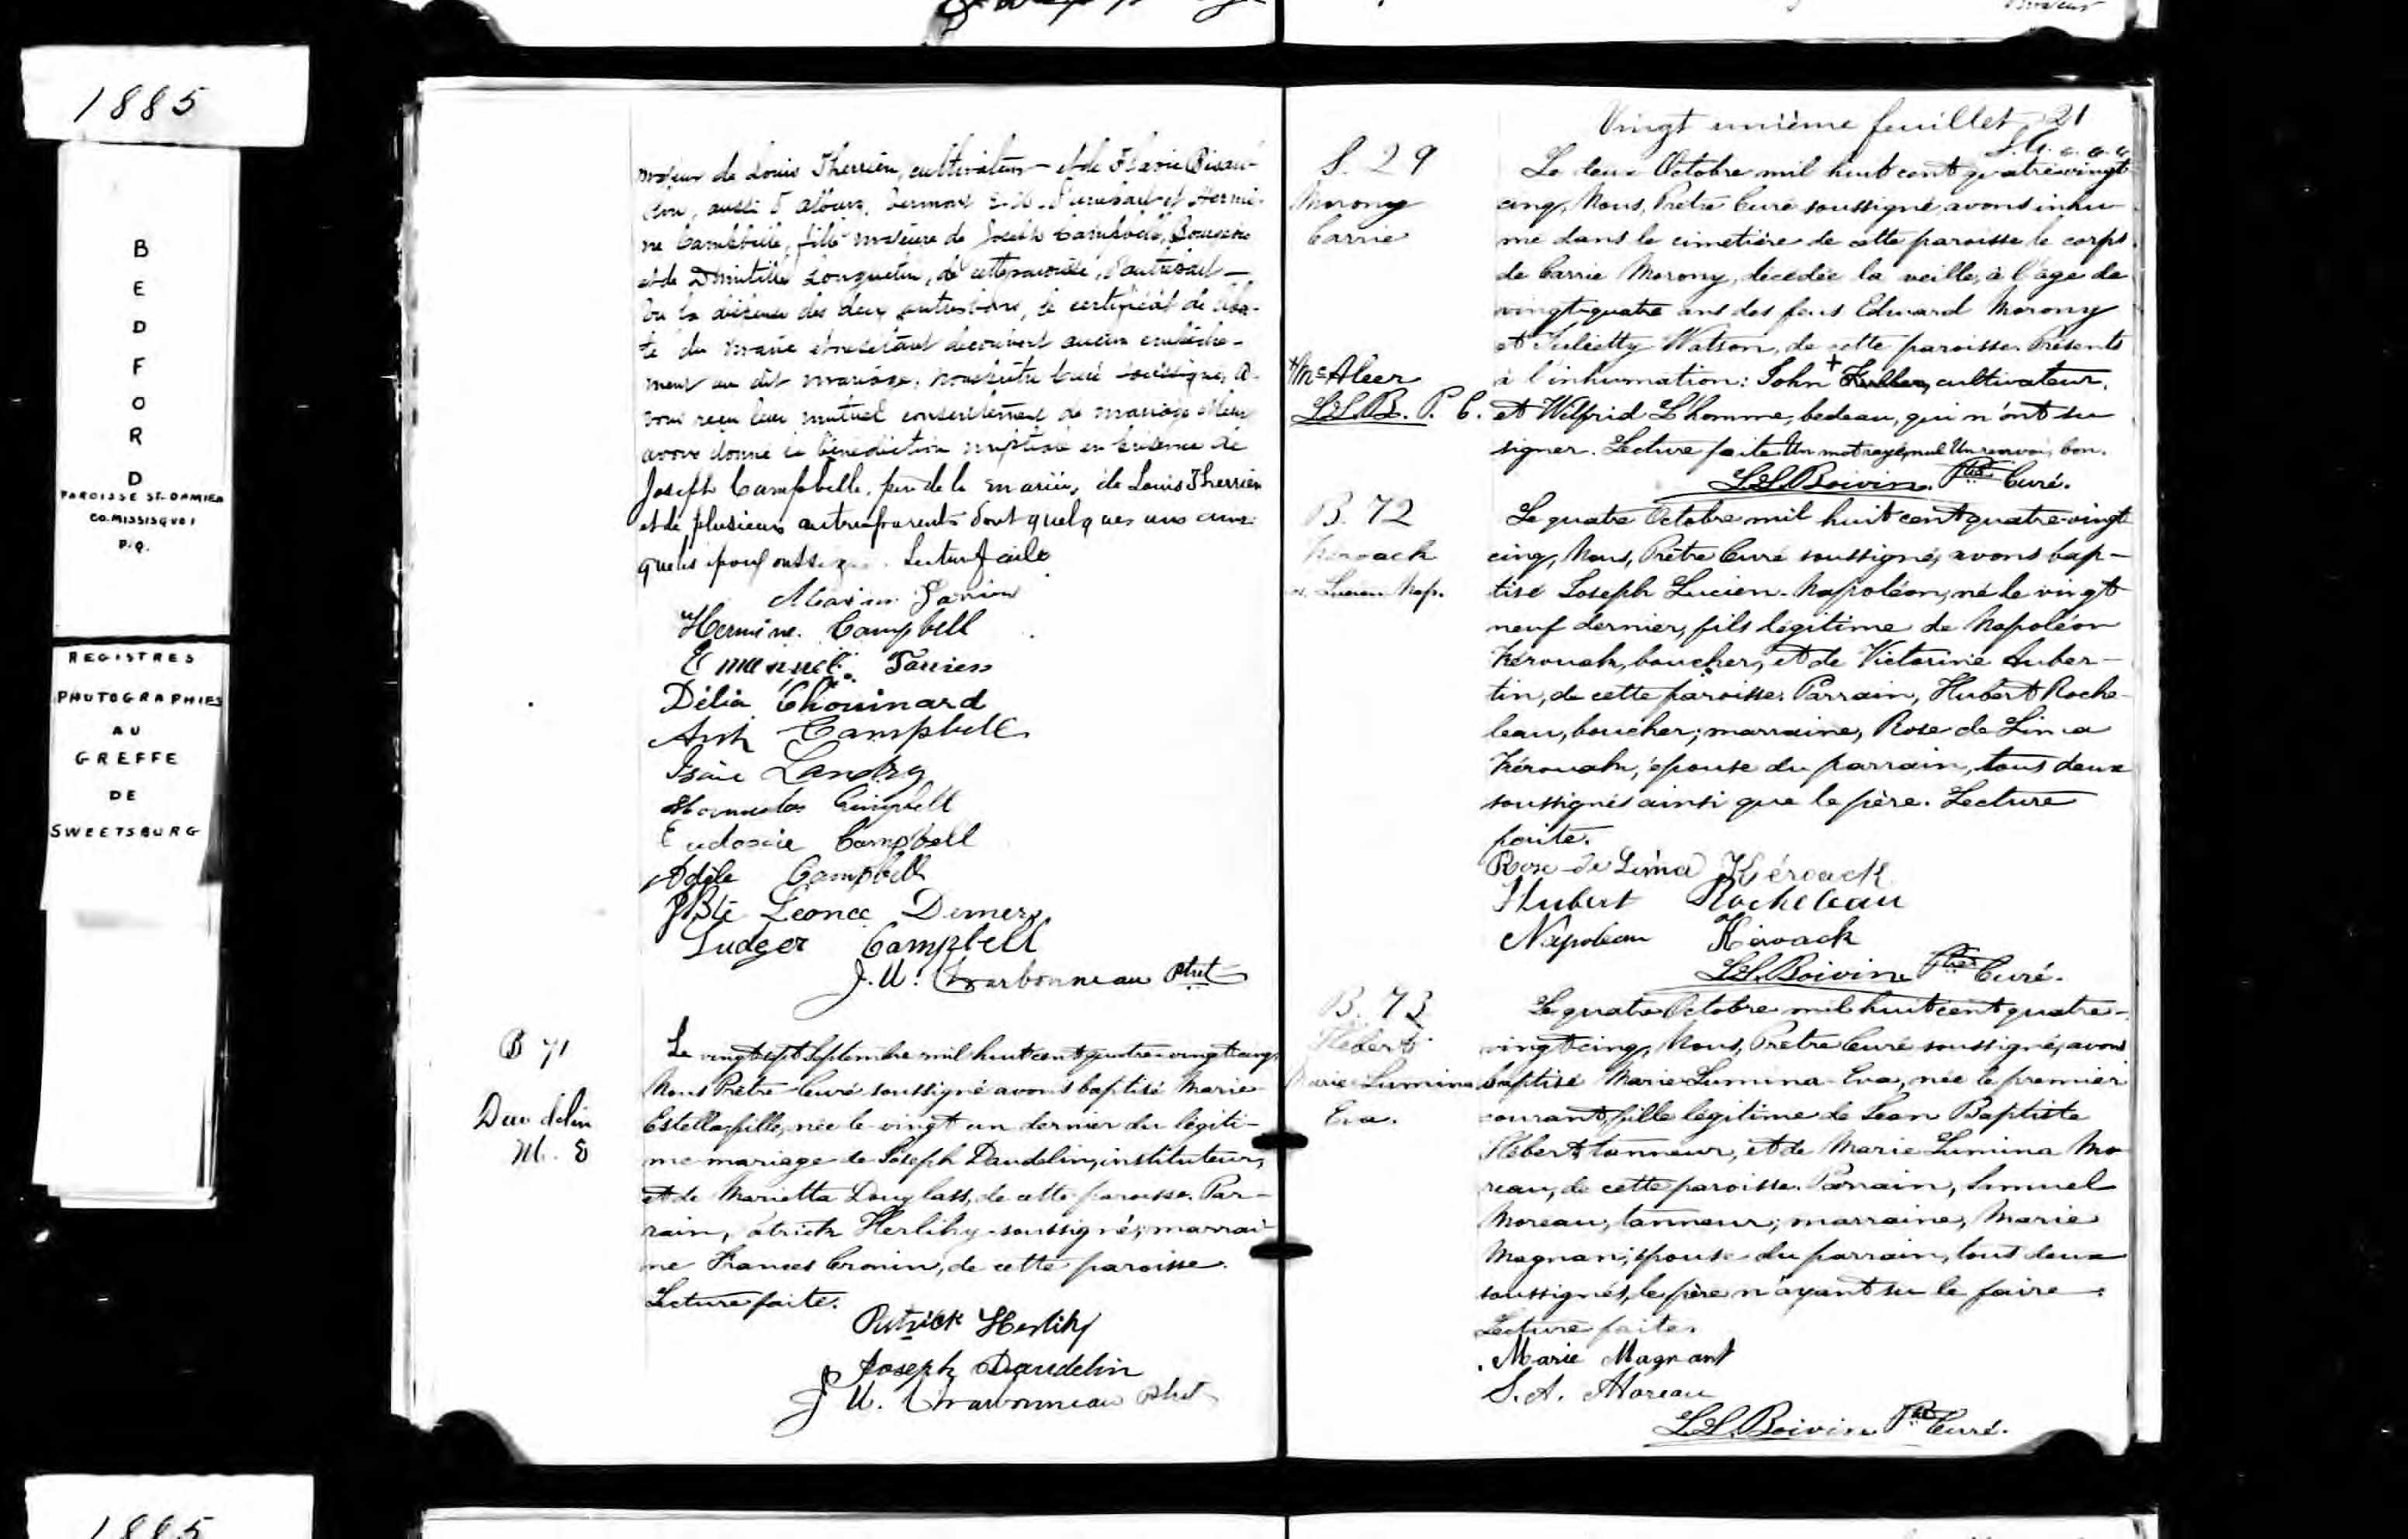 1885
BEDFORD
PAROISSE ST-DAMIEN
CO. MISSISQUOI
P.Q.
REGISTRES
PHOTOGRAPHIES
AU
GREFFE
DE
SWEETSBURG
majeur de Louis Therrien, cultivateur et de Flavie
aussi Vermont d'une part et Hermi-
ne Campbelle, fille majeure de Joseph Campbelle,
et de de cette paroisse, d'autre part
Vu la dispense des deux autres bans, le certificat de liber-
té du marié et ne s'étant découvert aucun empêche-
ment au dit mariage, nous prêtre curé soussigné, a-
vons reçu leur mutuel consentement de mariage et leur
avons donné la bénédiction nuptiale en présence de
Joseph Campbelle, père de la mariée, de Louis Therrien
et de plusieurs autres parents dont quelques uns
Lecture faite
Hermine. Campbell
Emanuel. Tarrien
Délia Chouinard
Campbell
Isaïe Landry
Campbell
Eudoxie Campbell
Adèle Campbell
JBte Léonce Demers
Ludger Campbell
J. U. Charbonneau Ptre
B 71
Daudelin
M. E
Le vingt sept Septembre mil huit cent quatre-vingt cinq,
Nous Prêtre-Curé soussigné avons baptisé Marie
Estella, fille, née le vingt un dernier du légiti-
me mariage de Joseph Daudelin, instituteur,
et de Marietta Douglass, de cette paroisse. Par-
rain, Patrick Herlihy soussigné, marrai-
ne Frances Cronin, de cette paroisse.
Lecture faite.
Patrick Herlihy
Joseph Daudelin
J. U. Charbonneau Ptre
Vingt unième feuillet 21
S. 29
Morony
Carrie
Le deux Octobre mil huit cent quatre-vingt
cinq, Nous, Prêtre Curé soussigné, avons inhu-
mé dans le cimetière de cette paroisse le corps
de Carrie Morony, décédée la veille, à l'âge de
vingt-quatre ans des feus Edward Morony
et Julietty Watson, de cette paroisse. Présents
+McAleer
L.S.B. P. C.
à l'inhumation: John + Fuller, cultivateur,
et Wilfrid L'homme, bedeau, qui n'ont su
signer. Lecture faite. Un mot rayé, nul. Un renvoi, bon.
L.S. Boivin. Ptre Curé.
B. 72
Kérouack
J. Lucien Nap.
Le quatre Octobre mil huit cent quatre-vingt
cinq, Nous, Prêtre Curé soussigné, avons bap-
tisé Joseph Lucien-Napoléon, né le vingt
neuf dernier, fils légitime de Napoléon
Kérouak, boucher, et de Victorine Auber-
tin, de cette paroisse. Parrain, Hubert Roche-
leau, boucher; marraine, Rose de Lima
Kérouak, épouse du parrain, tous deux
soussignés ainsi que le père. Lecture
faite.
Rose de Lima Kérouack
Hubert Rocheleau
Napoléon Kérouack
L.S. Boivin Ptre Curé.
B. 73
Hébert
Marie-Lumina
Eva.
Le quatre Octobre mil huit cent quatre-
vingt-cinq, Nous, Prêtre Curé soussigné, avons
baptisé Marie-Lumina-Eva, née le premier
courant, fille légitime de Jean Baptiste
Hébert, tanneur, et de Marie Lumina Mo-
reau, de cette paroisse. Parrain, Samuel
Moreau, tanneur; marraine, Marie
Magnan, épouse du parrain, tous deux
soussignés, le père n'ayant su le faire.
Lecture faite.
Marie Magnant
S. A. Moreau
L.S. Boivin Ptre Curé.
1885